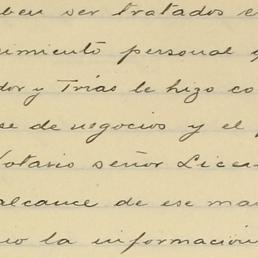 ben ser tratados e
imiento personal y
dor y Trías le hizo co
se de negocios y el p
Notario señor Licen
alcance de ese ma
no la información